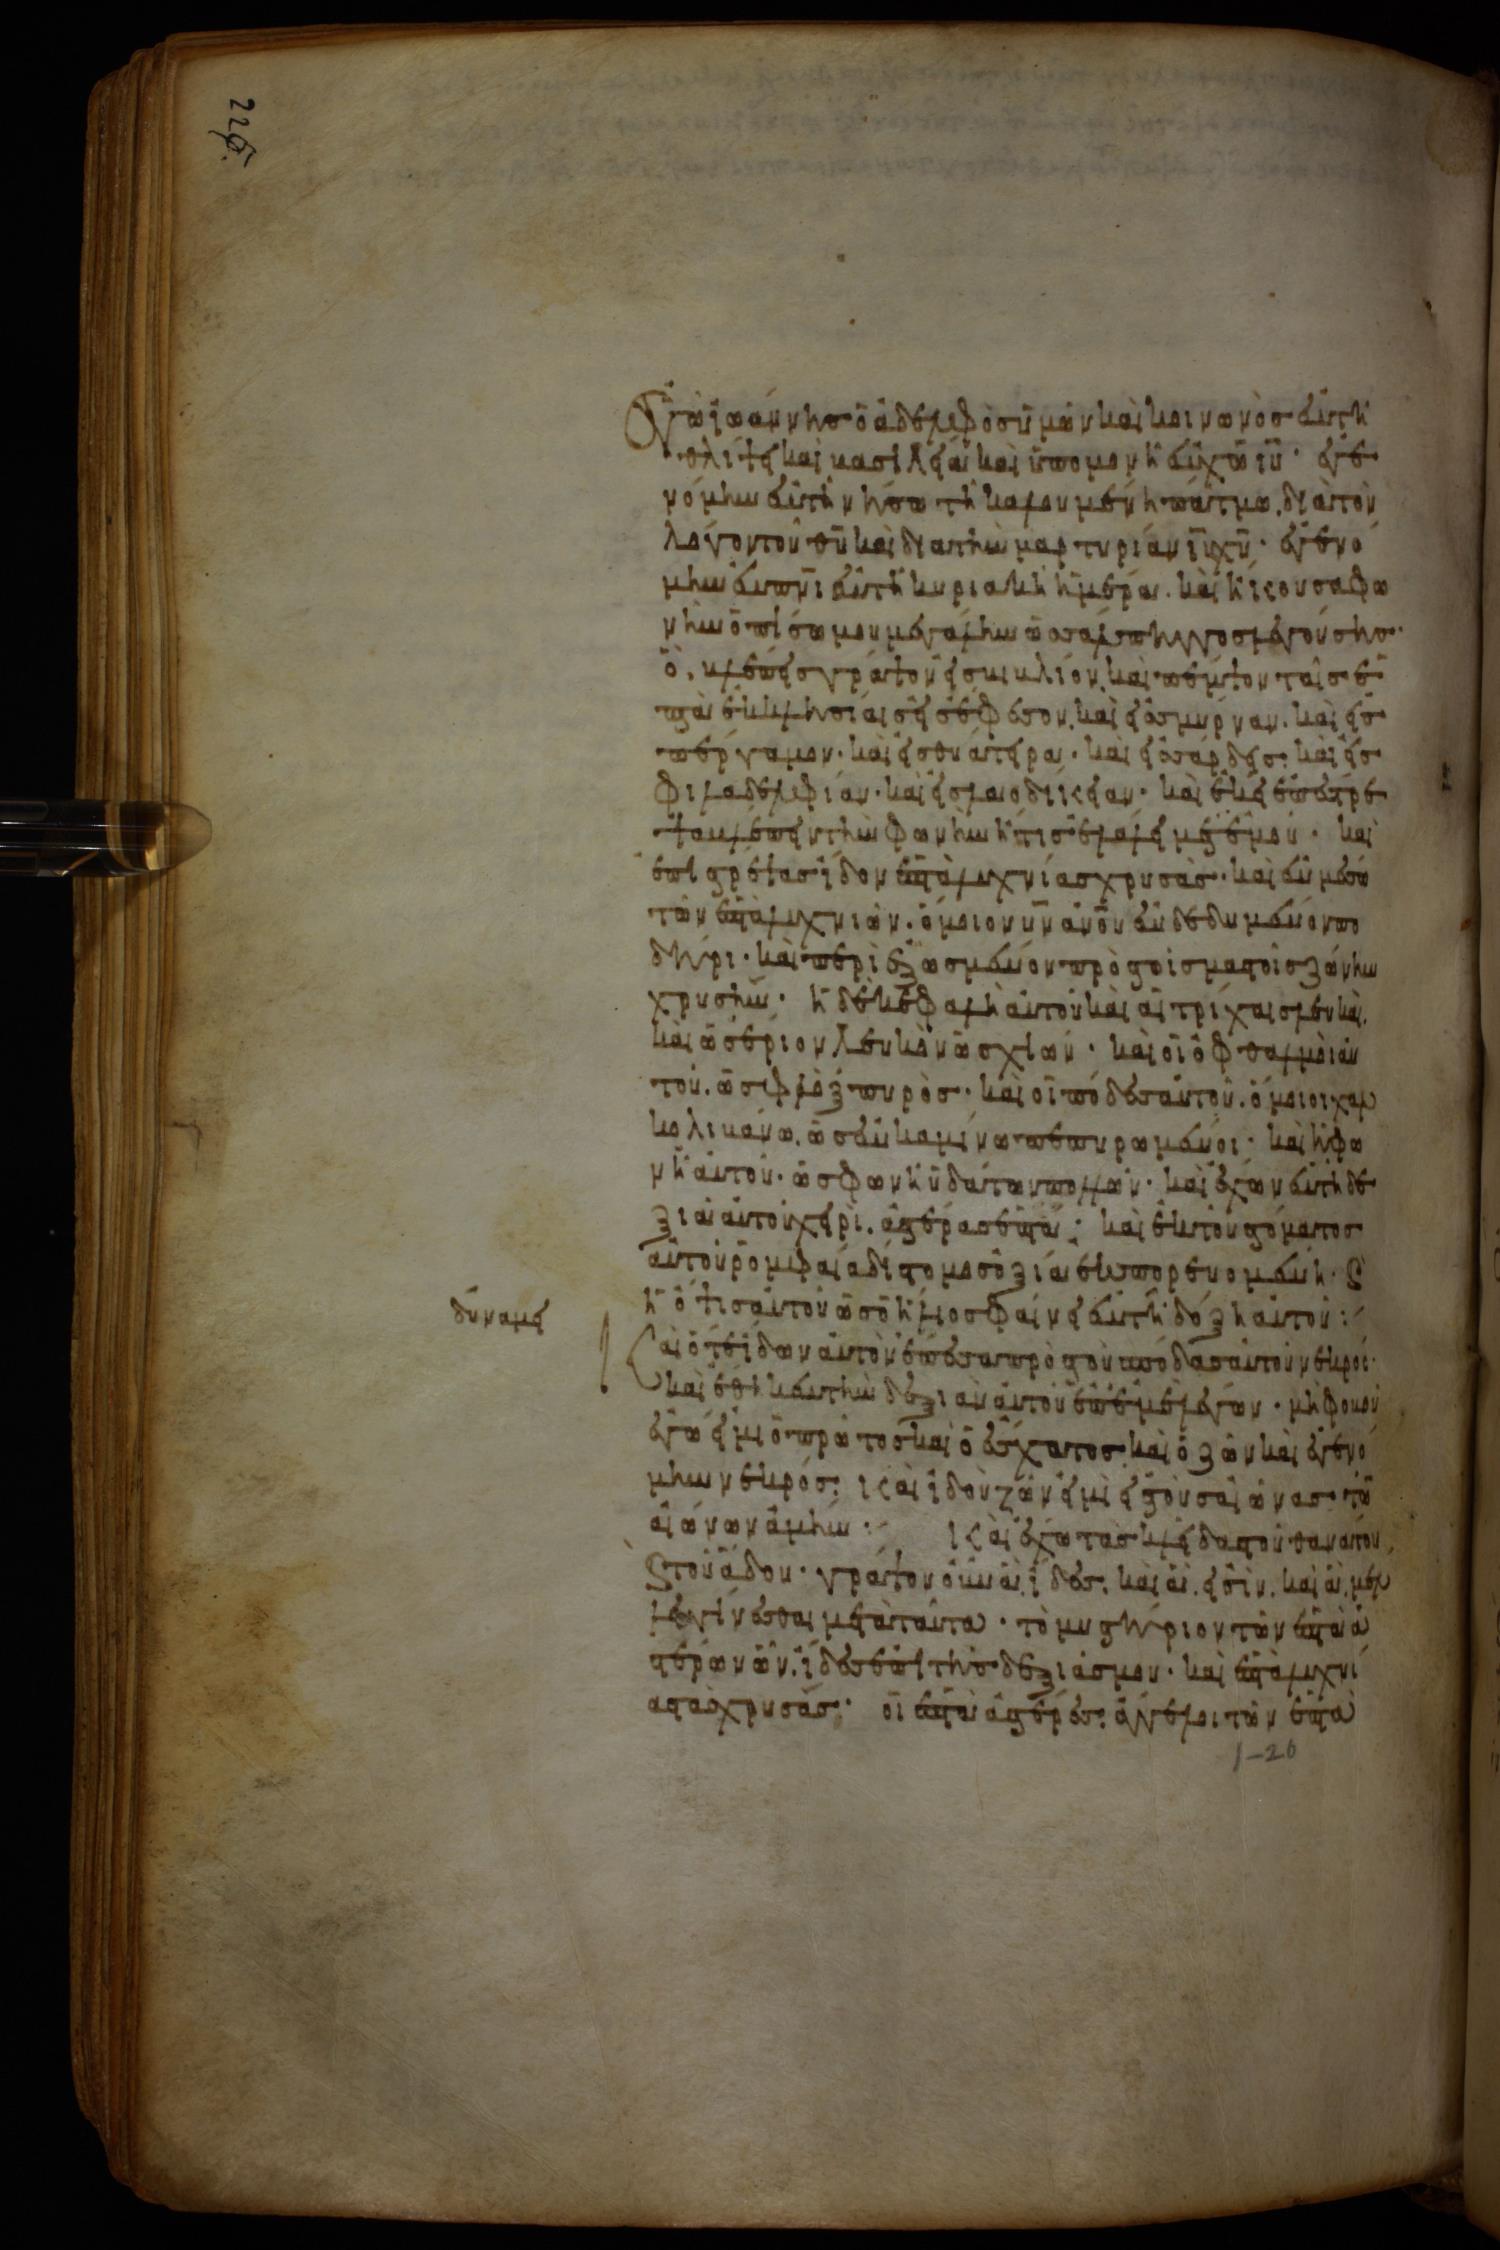 226.
Ἐγὼ ἰωάννης ὁ ἀδελφὸς ὑμῶν καὶ κοινωνὸς ἐν τῆ
θλίψει καὶ βασιλεία καὶ ὑπομονῆ ἐν χω ιυ· ἐγε
νόμην ἐν τῆ νήσω τῆ καλουμένη πάτμω, διὰ τὸν
λόγον τοῦ θυ καὶ δια τὴν μαρτυρίαν ιυ χυ· ἐγενό
μην ἐν πνι ἐν τῆ κυριακῆ ἡμέρα. καὶ ἤκουσα φω
νὴν ὀπίσω μου μεγάλην ὡς σάλπιγγος λεγούσης·
ὃ βλέπεις γράψον εἰς βιβλίον, καὶ πέμψον ταῖς ἑ
πτὰ ἐκκλησίαις εἰς ἔφεσον, καὶ εἰς σμύρναν. καὶ εἰς
πέργαμον· καὶ εἰς θυάτειρα· καὶ εἰς σάρδεις· καὶ εἰς
φιλαδέλφιαν· καὶ εἰς λαοδίκειαν· καὶ ἐκεῖ ἐπέστρε
ψα βλέπειν τὴν φωνὴν ἥτις ἐλάλει μετ' ἐμοῦ· καὶ
ἐπιστρέψας εἶδον ἑπτὰ λυχνίας χρυσᾶς· καὶ ἐν μέσω
τῶν ἑπτὰ λυχνιῶν· ὅμοιον υν ανον ἐνδεδυμένον πο
δήρη· καὶ περιεζωσμένον πρὸς τοῖς μαστοῖς ζώνην
χρυσῆν· ἡ δὲ κεφαλὴ αὐτοῦ καὶ αἱ τρίχαις λευκαὶ.
καὶ ὡς ἔριον λευκὸν ὡς χιών· καὶ οἱ ὀφθαλμοὶ αὐ
τοῦ. ὡς φλὸξ πυρὸς· καὶ οἱ πόδες αὐτοῦ. ὅμοιοι χαλ
κολιβάνω. ὡς ἐν καμίνω πεπυρωμένοι· καὶ ἡ φω
νὴ αὐτοῦ· ὡς φωνὴ ὑδάτων πολλῶν· καὶ ἔχων ἐν τῆ δε
ξιᾶ αὐτοῦ χειρὶ. ἀστέρας ἑπτά· καὶ ἐκ τοῦ στόματος
αὐτοῦ ῥομφαία δίστομος ὀξεῖα ἐκπορευομένη· καὶ
ἡ ὄψις αὐτοῦ ὡς ὁ ἥλιος φαίνει ἐν τῆ δόξη αὐτοῦ:
δυνάμει
Καὶ ὅτε εἶδων αὐτὸν ἔπεσα πρὸς τοὺς πόδας αὐτοῦ νεκρός·
καὶ ἔθηκεν τὴν δεξιὰν αὐτοῦ ἐπ' ἐμὲ λέγων· μὴ φοβοῦ
ἐγώ εἰμι ὁ πρῶτος καὶ ὁ ἔσχατος καὶ ὁ ζῶν καὶ ἐγενό
μην νεκρός· καὶ ἰδοὺ ζῶν εἰμὶ εἰς τοὺς αἰῶνας τῶν
αἰώνων ἀμήν: καὶ ἔχω τὰς κλεῖδας τοῦ θανάτου
καὶ τοῦ ἅδου· γράψον οὖν ἃ εἶδες, καὶ ἃ εἰσὶν, καὶ ἃ μέλ
λει γίνεσθαι μετὰ ταῦτα· τὸ μυστήριον τῶν ἑπτὰ ἀ
στέρων ὧν εἶδες ἐπὶ τῆς δεξιᾶς μου· καὶ ἑπτὰ λυχνί
ας τὰς χρυσᾶς· οἱ ἑπτὰ ἀστέρες ἄγγελοι τῶν ἑπτὰ
1-20